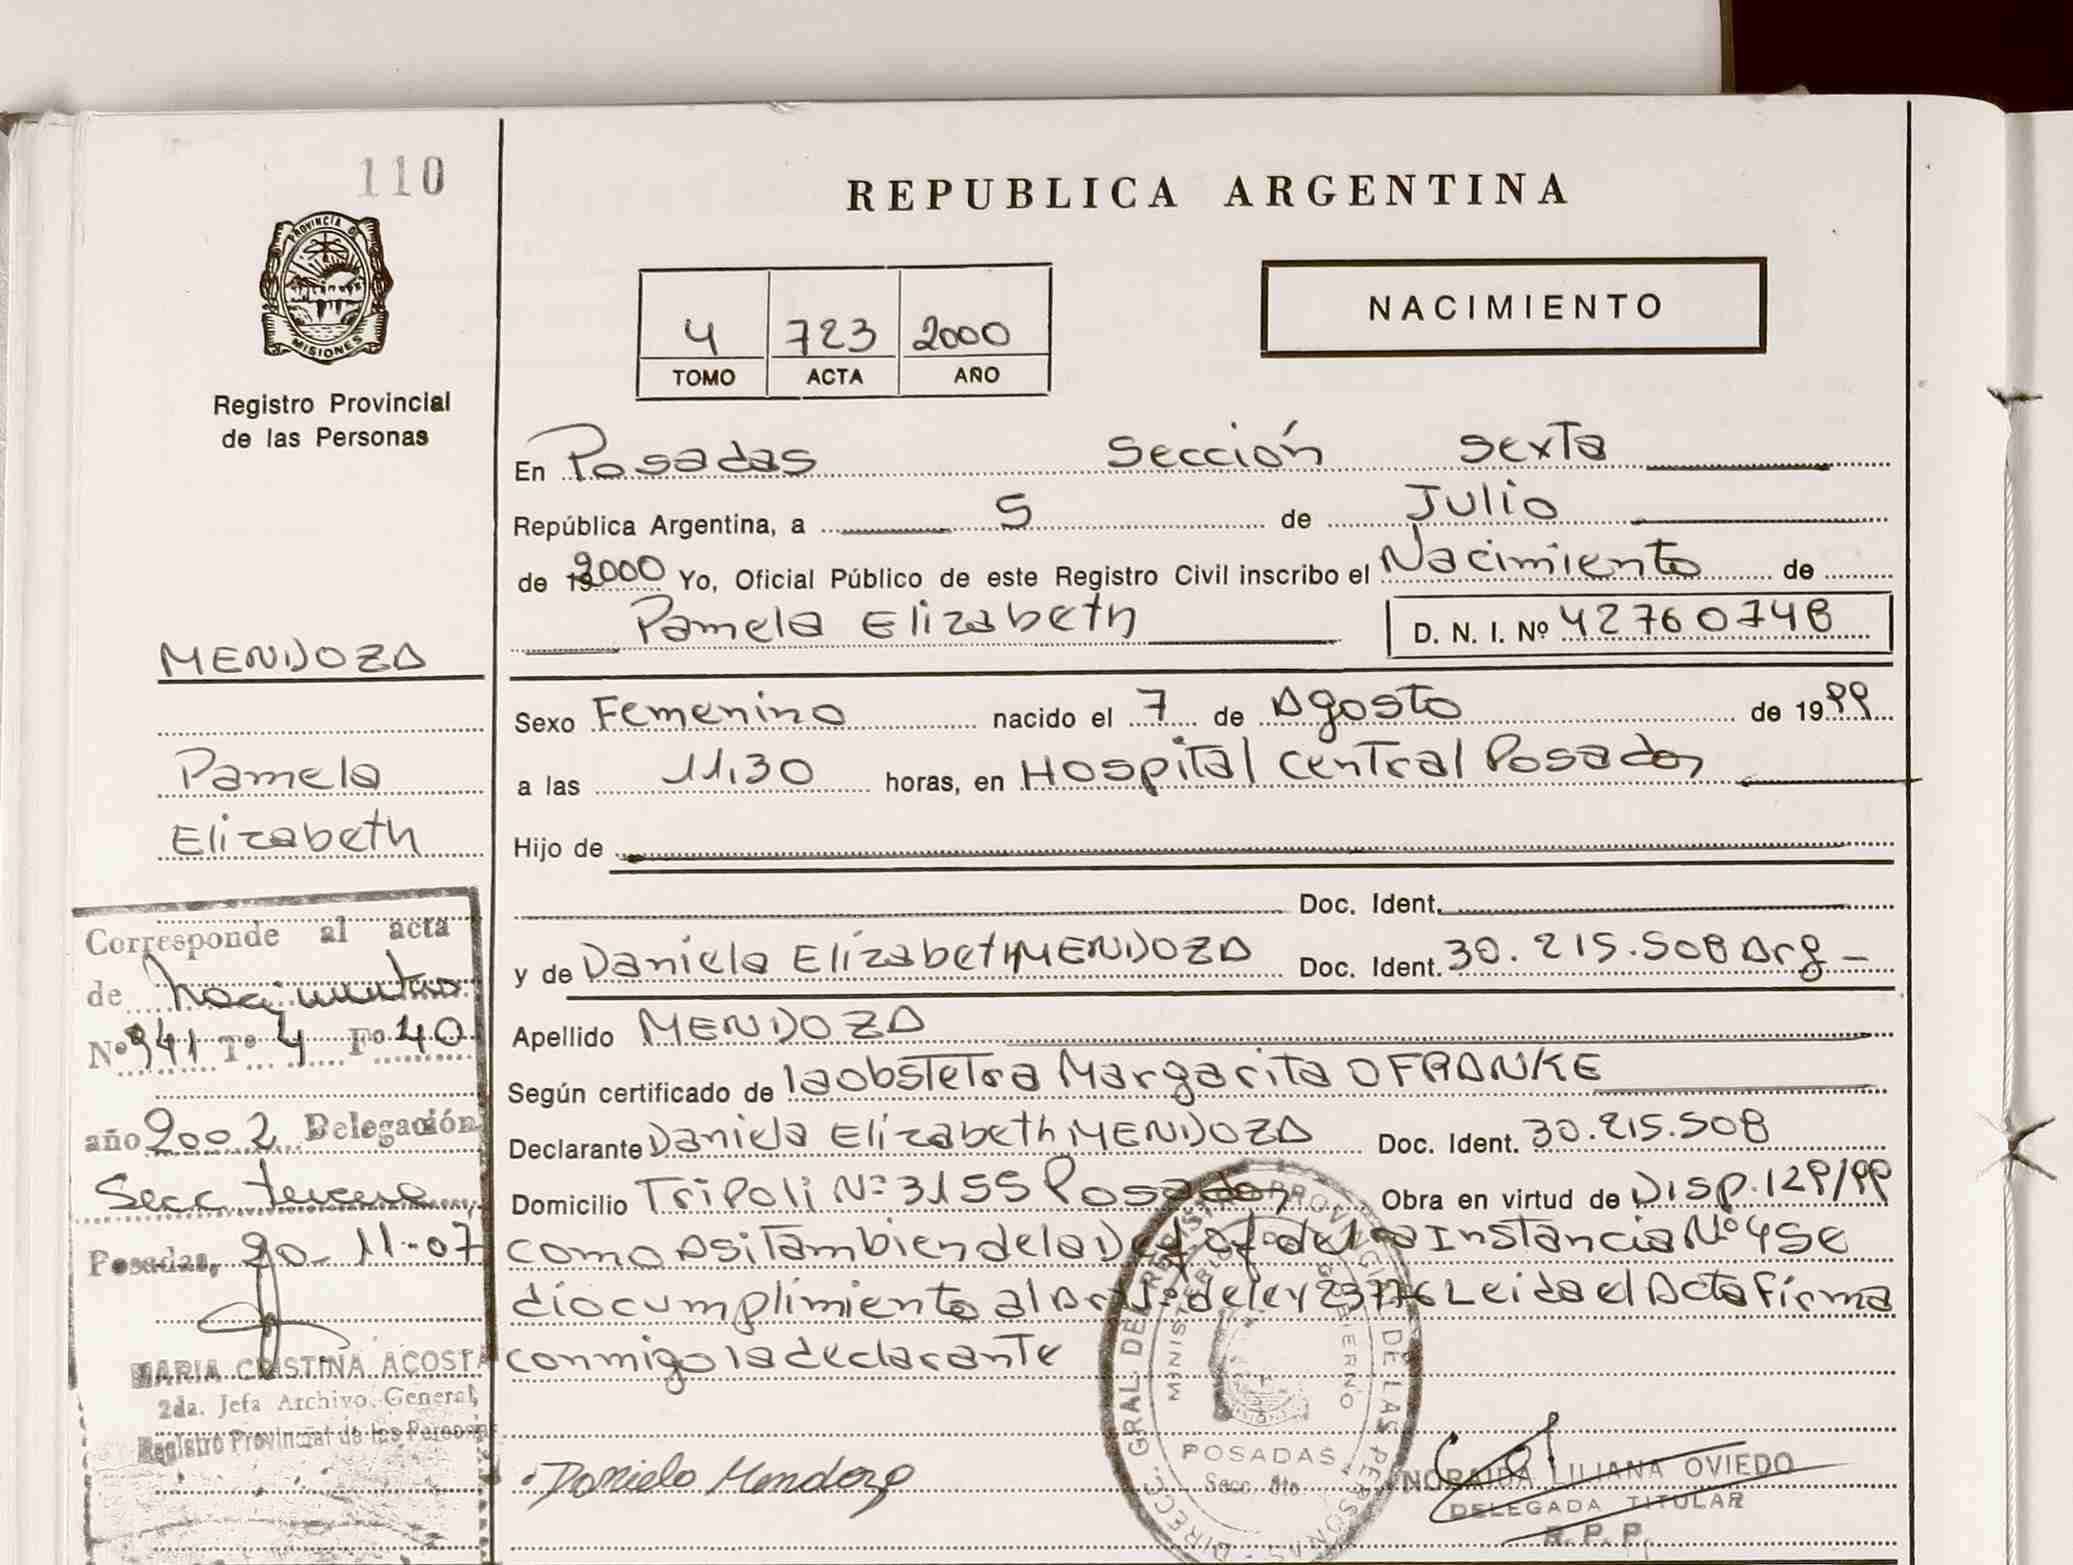 110
PROVINCIA D
MISIONES
Registro Provincial
de las Personas
REPUBLICA ARGENTINA
NACIMIENTO
4 723 2000
TOMO ACTA AÑO
En Posadas Sección sexta
República Argentina, a 5 de Julio
de 2000 Yo, Oficial Público de este Registro Civil inscribo el Nacimiento de
Pamela Elizabeth D. N. I. Nº 42760748
MENDOZA
Pamela
Elizabeth
Sexo Femenino nacido el 7 de Agosto de 1999
a las 11,30 horas, en Hospital Central Posadas
Hijo de
Doc. Ident.
y de Daniela Elizabeth MENDOZA Doc. Ident. 30.215.508 Arg
Apellido MENDOZA
Según certificado de la obstetra Margarita O FRANKE
Declarante Daniela Elizabeth MENDOZA Doc. Ident. 30.215.508
Domicilio Tripoli Nº 3155 Posadas Obra en virtud de Disp. 129/99
como asi Tambien de la Instancia Nº 4 Se
dio cumplimiento al de ley 23776 Leida el Acta Firma
conmigo la declarante
Corresponde al acta
de nacimiento
Nº 941 Tº 4 Fº 40
año 2002 Delegación
Secc tercera
Posadas, 20-11-07
MARIA CRISTINA ACOSTA
2da. Jefa Archivo General
Registro Provincial de las Personas
Daniela Mendoza
DIREC. GRAL DEL REGISTRO PROVINCIAL DE LAS PERSONAS
MINISTERIO GOBIERNO
POSADAS
Secc. 6ta
NORAIDA LILIANA OVIEDO
DELEGADA TITULAR
R. P. P.